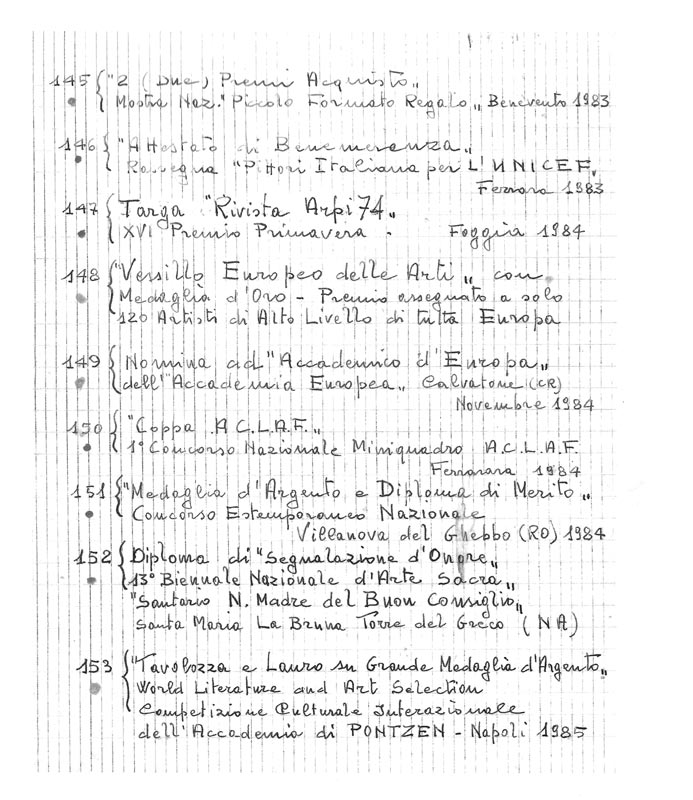 145 "2 (Due) Premi Acquisto"
Mostra Naz. "Piccolo Formato Regalo" Benevento 1983
146 "Attestato di Benemerenza"
Rassegna "Pittori Italiana per L'UNICEF"
Ferrara 1983
147 Targa "Rivista Arpi 74"
XVI Premio Primavera - Foggia 1984
148 "Versillo Europeo delle Arti" con
Medaglia d'Oro - Premio assegnato a solo
120 Artisti di Alto Livello di tutta Europa
149 Nomina ad "Accademico d'Europa"
dell'"Accademia Europea" Calvatone (CR)
Novembre 1984
150 "Coppa A.C.L.A.F."
1° Concorso Nazionale Miniquadro A.C.L.A.F.
Ferrarara 1984
151 "Medaglia d'Argento e Diploma di Merito"
Concorso Estemporaneo Nazionale
Villanova del Ghebbo (RO) 1984
152 Diploma di "Segnalazione d'Onore"
13° Biennale Nazionale d'Arte Sacra"
"Santario N. Madre del Buon Consiglio"
Santa Maria La Bruna Torre del Greco (NA)
153 "Tavolozza e Lauro su Grande Medaglia d'Argento"
World Literature and Art Selection
Competizione Culturale Interazionale
dell'Accademia di PONTZEN - Napoli 1985